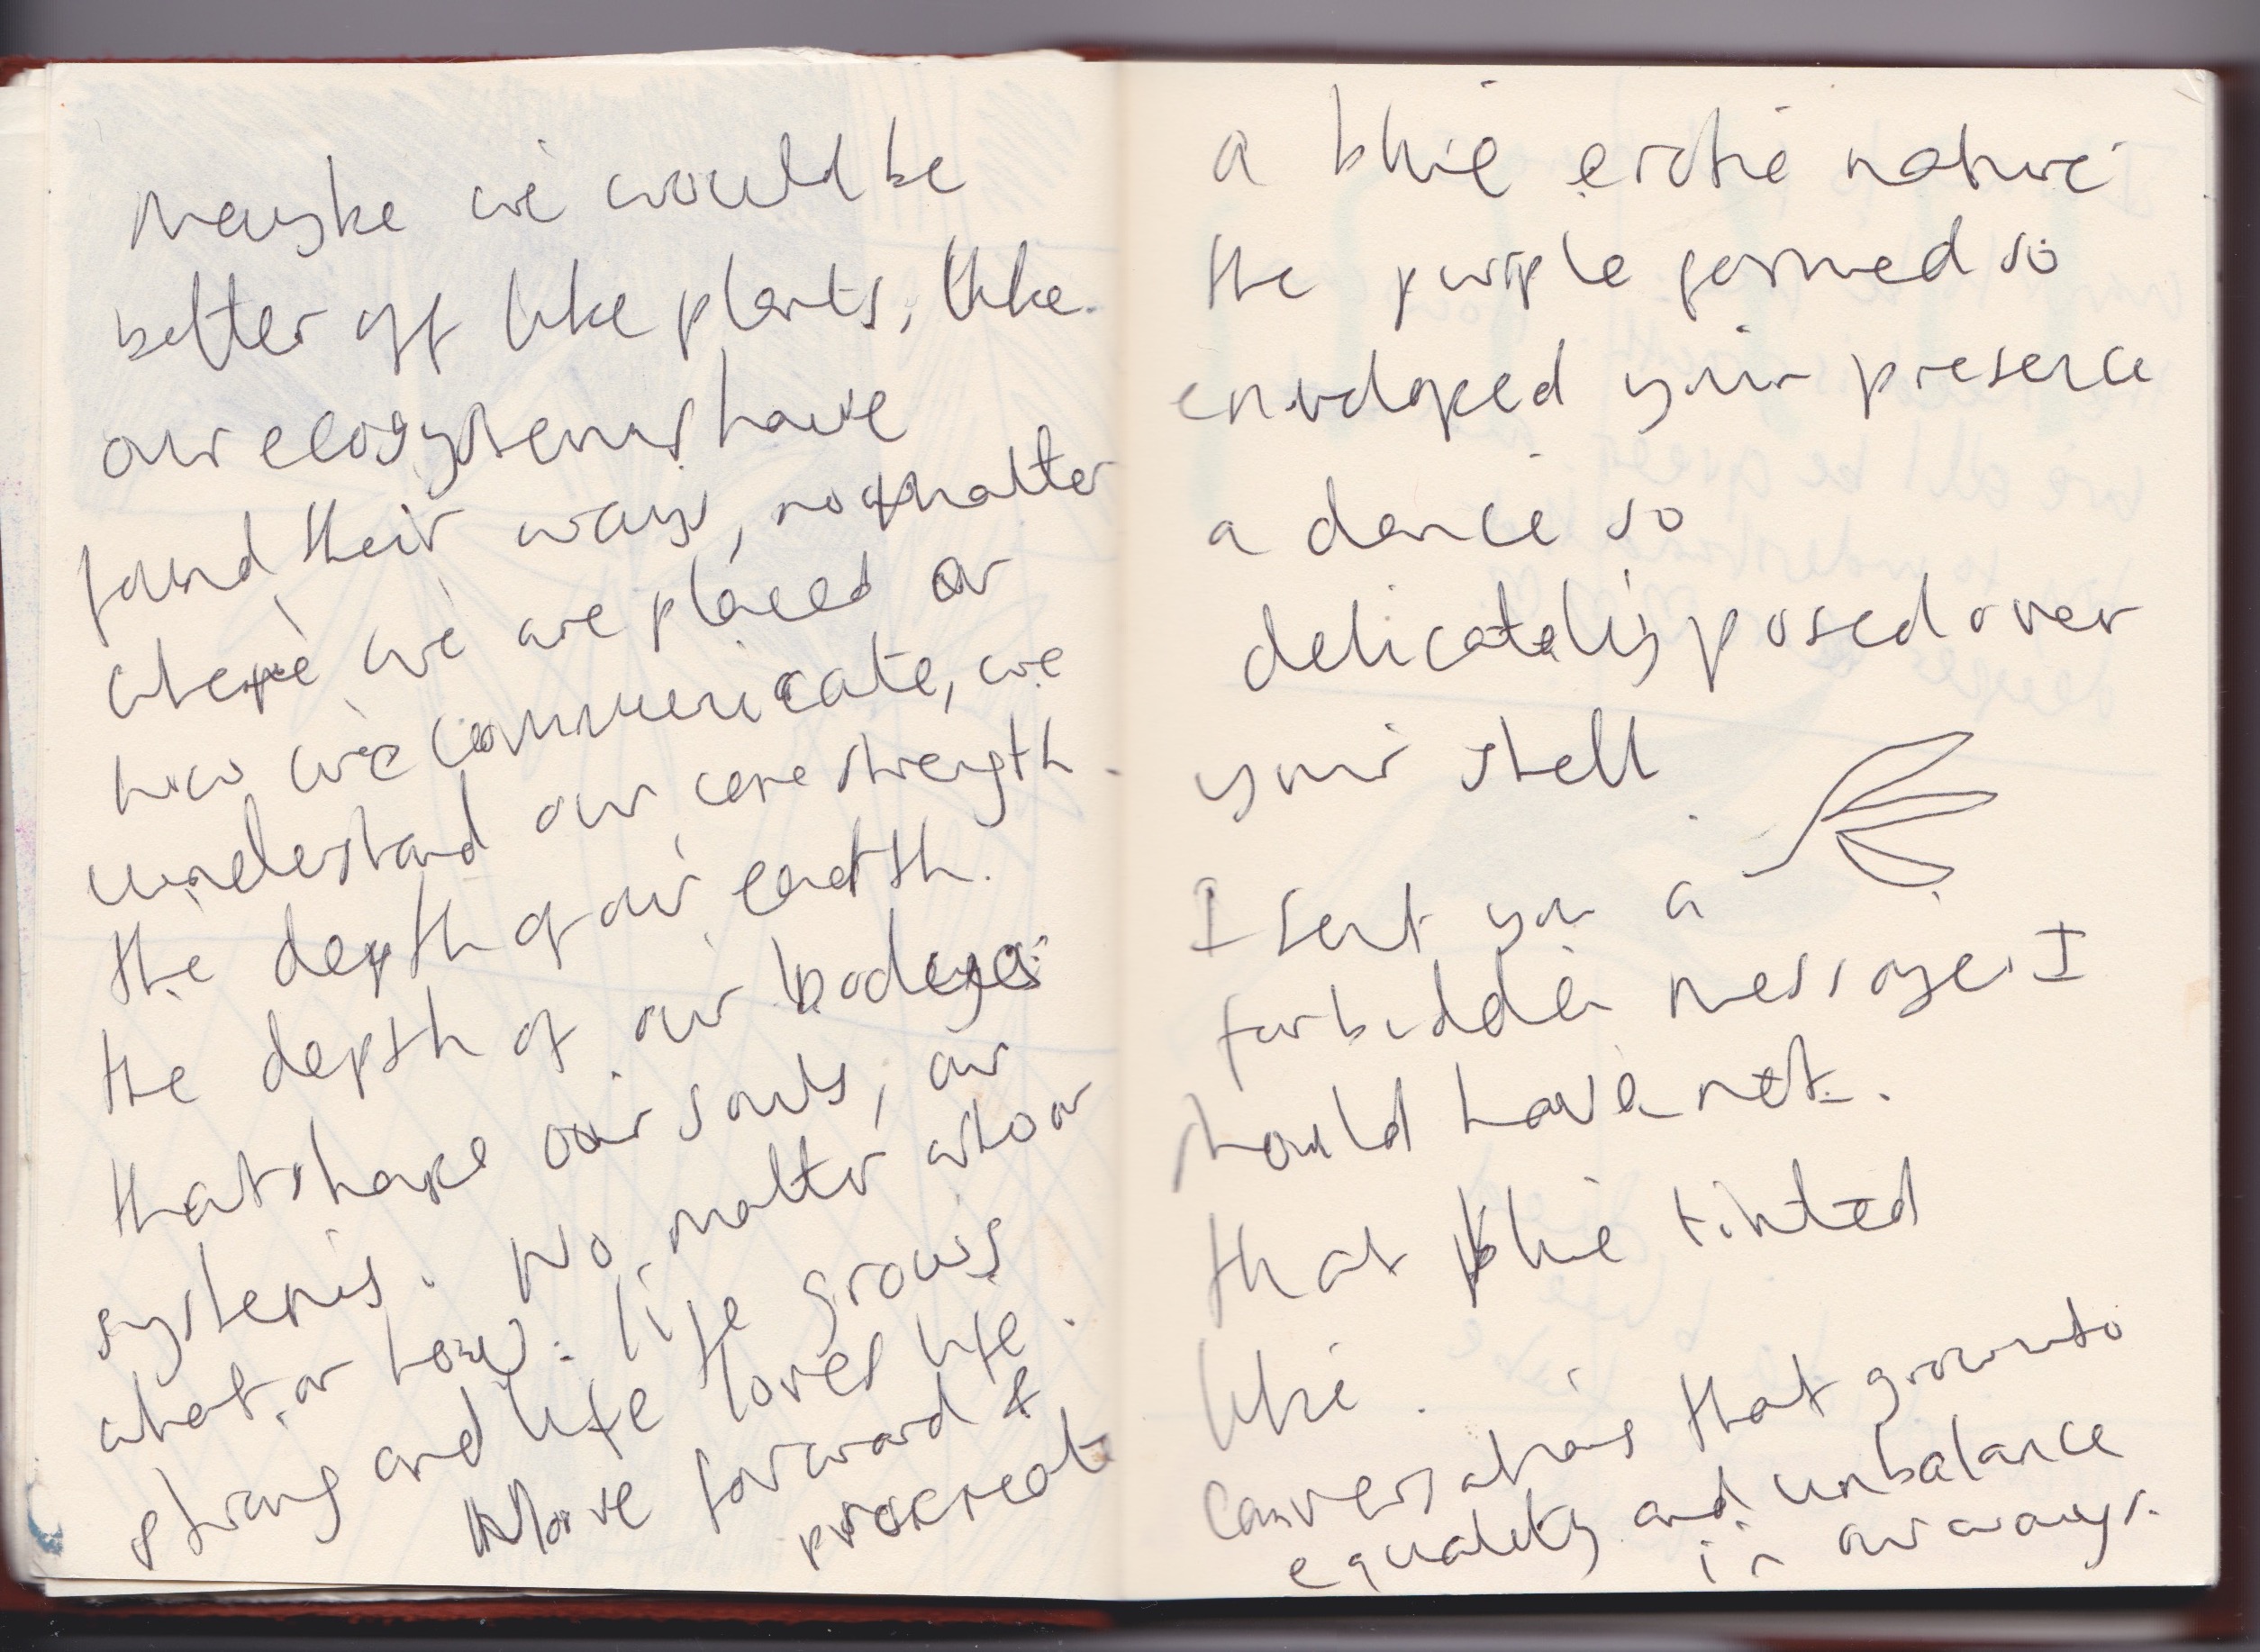 Maybe we would be
better off like plants, like
our ecosystems have
found their ways, no matter
where we are placed or
how we communicate, we
understand our core strength
the depth of our earth.
the depth of our bodies
that shape our souls, our
systems. No matter who or
what or how. life grows
strong and life loves life.
Move forward &
procreate
a blue erotic nature
the purple formed so
enveloped your presence
a dance so
delicately posed over
your shell
I sent you a
forbidden message. I
should have not.
that blue tinted
like.
Conversations that grow into
equality and unbalance
in our ways.